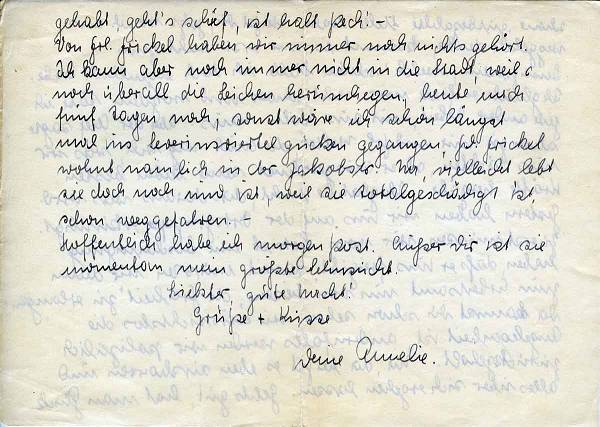 gehabt, geht's schief, ist halt Pech! –
Von Frl. Frickel haben wir immer noch nichts gehört.
Ich kann aber noch immer nicht in die Stadt, weil
noch überall die Leichen herumliegen, heute nach
fünf Tagen noch, sonst wäre ich schon längst
mal ins Severinsviertel gucken gegangen, Frl. Frickel
wohnt nämlich in der Jakobstr. Na, vielleicht lebt
sie doch noch und ist, weil sie totalgeschädigt ist,
schon weggefahren. –
Hoffentlich habe ich morgen Post. Außer Dir ist sie
momentan mein größte Sehnsucht.
Liebster, gute Nacht!
Grüße + Küsse
Deine Annelie.